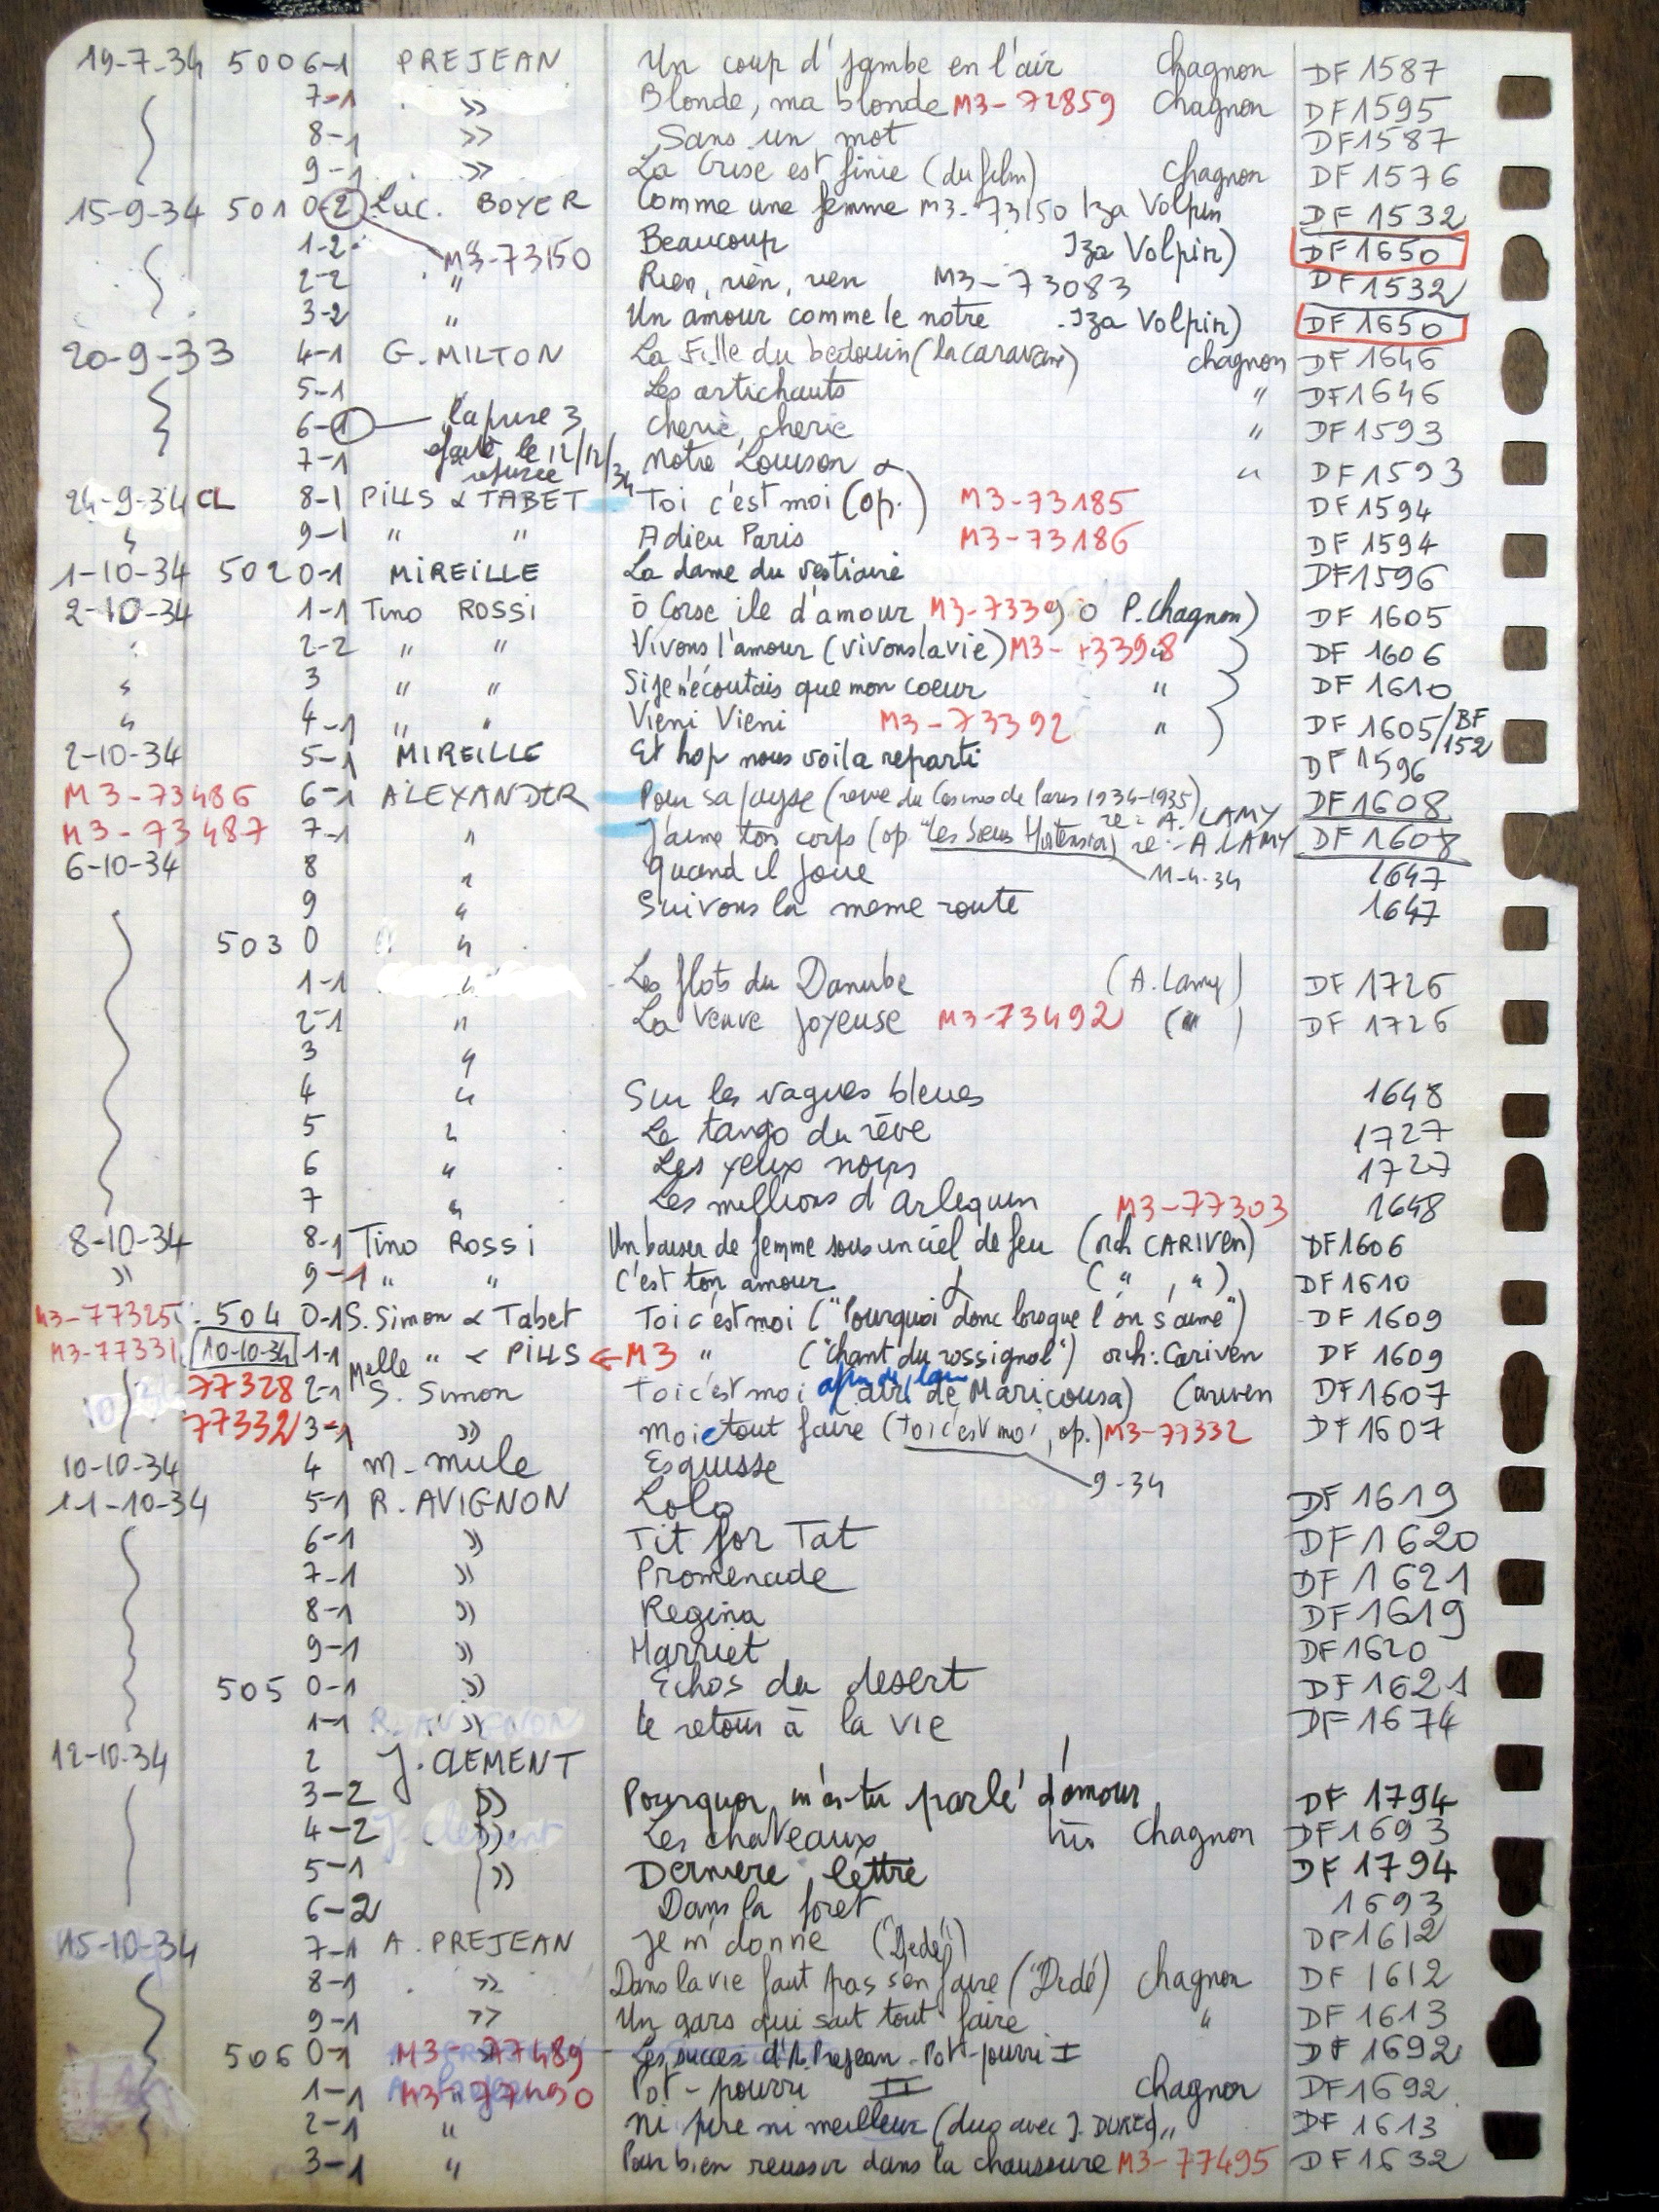 19-7-34 5006-1 PREJEAN Un coup d'jambe en l'air Chagnon DF 1587
7-1 » Blonde, ma blonde M3-72859 Chagnon DF 1595
8-1 » Sans un mot DF 1587
9-1 » La Crise est finie (du film) Chagnon DF 1576
15-9-34 501 0-2 Luc. BOYER Comme une femme M3-73150 Iza Volpin DF 1532
1-2 M3-73150 Beaucoup Iza Volpin) DF 1650
2-2 " Rien, rien, rien M3-73083 DF 1532
3-2 " Un amour comme le notre Iza Volpin) DF 1650
20-9-33 4-1 G. MILTON La Fille du bedouin (la caravane) chagnon DF 1646
5-1 Les artichauts " DF 1646
6-1 la prise 3 cherie, cherie " DF 1593
7-1 le 12/12/34 refusée Notre Louison " DF 1593
24-9-34 CL 8-1 PILLS & TABET Toi c'est moi (op.) M3-73185 DF 1594
9-1 " " Adieu Paris M3-73186 DF 1594
1-10-34 502 0-1 MIREILLE La dame du vestiaire DF 1596
2-10-34 1-1 Tino ROSSI O Corse ile d'amour M3-73390 P. Chagnon) DF 1605
2-2 " " Vivons l'amour (vivons la vie) M3- DF 1606
" 3 " " Si je n'écoutais que mon coeur " DF 1610
" 4-1 " " Vieni Vieni M3-73392 " DF 1605/BF 152
2-10-34 5-1 MIREILLE Et hop nous voila reparti DF 1596
M3-73486 6-1 ALEXANDER Pour sa (revue du Casino de Paris 1934-1935) re: A. LAMY DF 1608
M3-73487 7-1 " J'aime ton corps (op. "les soeurs Hortensia) re: A LAMY DF 1608
6-10-34 8 " Quand il joue 11-4-34 1647
9 " Suivons la meme route 1647
503 0 "
1-1 " Les flots du Danube (A. Lamy) DF 1726
2-1 " La Veuve Joyeuse M3-73492 (") DF 1726
3 "
4 " Sur les vagues bleues 1648
5 " Le tango du rêve 1727
6 " Les yeux noirs 1727
7 " Les millions d'Arlequin M3-77303 1648
8-10-34 8-1 Tino ROSSI Un baiser de femme sous un ciel de feu (orch CARIVEN) DF 1606
» 9-1 " " C'est ton amour (" , ") DF 1610
M3-77325 504 0-1 S. Simon & Tabet Toi c'est moi ("Pourquoi donc lorsque l'on s'aime") DF 1609
M3-77331 10-10-34 1-1 Melle " & PILLS ← M3 " ("chant du rossignol") orch: Cariven DF 1609
77328 2-1 S. Simon Toi c'est moi air de Maricousa) Cariven DF 1607
77332 3-1 » Moi c tout faire (toi c'est moi, op.) M3-77332 DF 1607
10-10-34 4 M. MULE Esquisse 9-34
11-10-34 5-1 R. AVIGNON Lola DF 1619
6-1 » Tit for Tat DF 1620
7-1 » Promenade DF 1621
8-1 » Regina DF 1619
9-1 » Harriet DF 1620
505 0-1 » Echos du desert DF 1621
1-1 » Le retour à la vie DF 1674
12-10-34 2 J. CLEMENT
3-2 » Pourquoi m'as-tu parlé d'amour DF 1794
4-2 » Les chateaux Chagnon DF 1693
5-1 » Derniere lettre DF 1794
6-2 Dans la foret 1693
15-10-34 7-1 A. PREJEAN Je m'donne ("Dedé") DF 1612
8-1 » Dans la vie faut pas s'en faire ("Dedé) Chagnon DF 1612
9-1 » Un gars qui sait tout faire " DF 1613
506 0-1 M3-77489 Les succes d'A. Prejean - Pot-pourri I DF 1692
1-1 M3-77490 Pot-pourri II Chagnon DF 1692
2-1 " Ni pire ni meilleur (duo avec J. " DF 1613
3-1 " Pour bien reussir dans la chaussure M3-77495 DF 1632